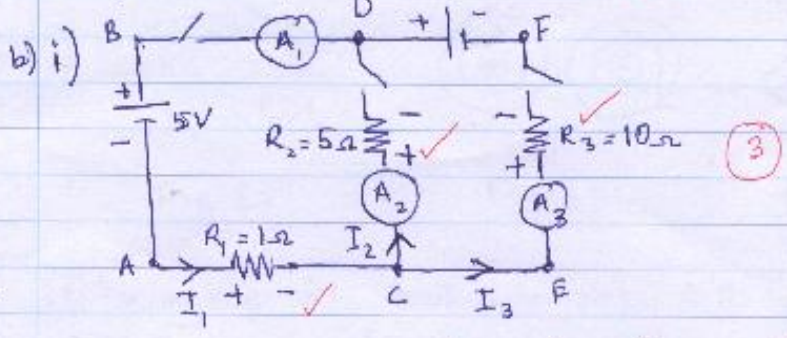 D
b) i) B A₁ + - F
+ 5V
-
R₂ = 5Ω - + - R₃ = 10Ω + 3
A₂ A₃
R₁ = 1Ω I₂
A I₁ + - C I₃ E